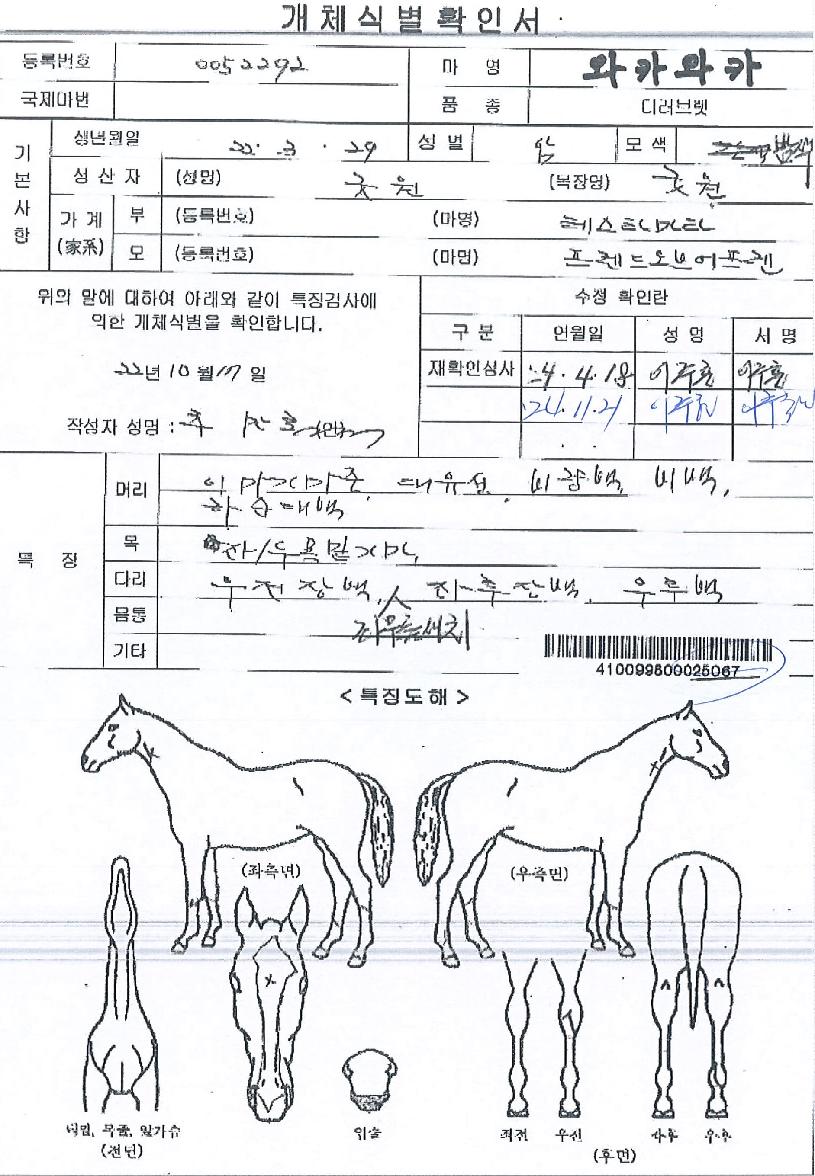 개체식별확인서
등록번호 0052292 마명 와카와카
국제마번 품종 더러브렛
기본사항 생년월일 22. 3. 29 성별 암 모색
생산자 (성명) 굿윈 (목장명) 굿윈
가계(家系) 부 (등록번호) (마명) 테스타마타
모 (등록번호) (마명) 프렌드오브어프렌
위의 말에 대하여 아래와 같이 특징검사에
의한 개체식별을 확인합니다.
22년 10월 17일
작성자 성명 :
수정 확인란
구분 연월일 성명 서명
재확인심사 24. 4. 18
24. 11. 21
특징 머리 이마가마존, 대유성, 비량백, 비백,
하순대백
목 좌/우목밑가마,
다리
몸통
기타
410099600025067
<특징도해>
(좌측면) (우측면)
턱밑, 목줄, 앞가슴 (전면)
입술
좌전 우전 좌후 우후
(후면)